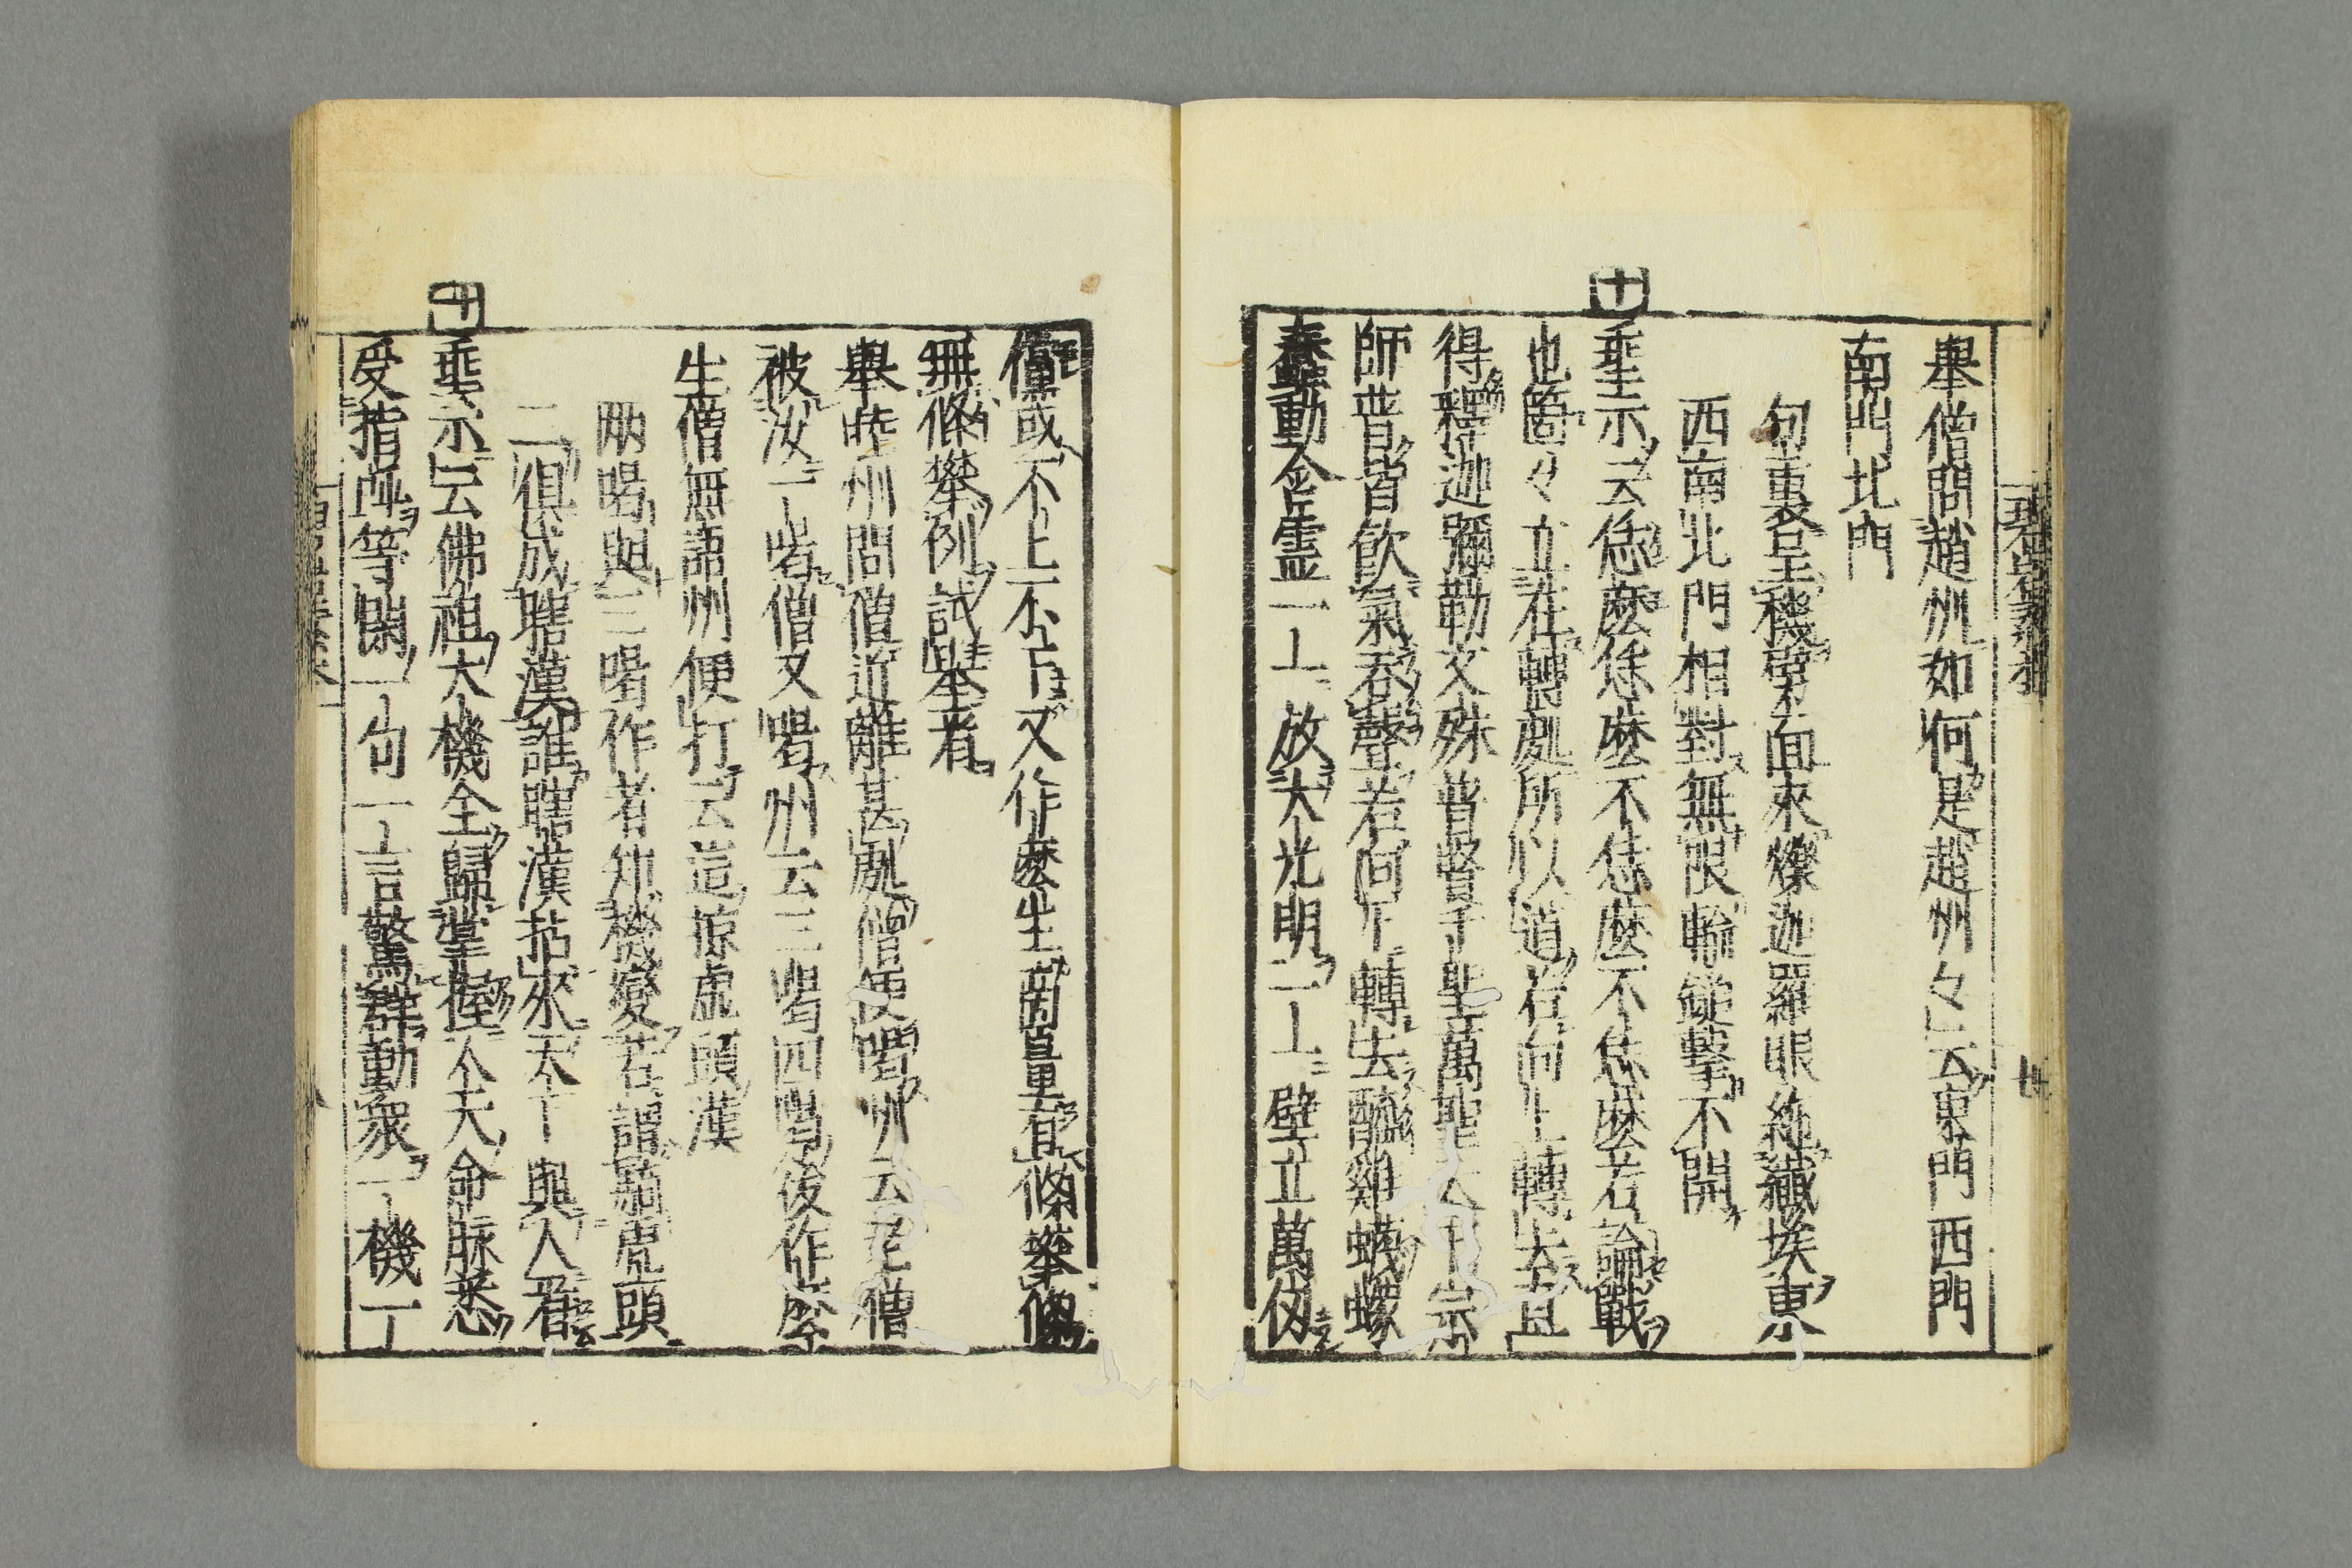 舉僧問趙州如何是趙州々云東門西門
南門北門
句裏呈機劈面來爍迦羅眼絶纖埃東
西南北門相對無限輪鎚擊不開
十
垂示云恁麼恁麼不恁麼不恁麼若論戰
也箇々立在轉處所以道若向上轉去直
得釋迦彌勒文殊普賢千聖萬聖天下宗
師普皆飲氣吞聲若向下轉去醯雞蠛蠓
蠢動含靈一一放大光明一一壁立萬仭
儻或不上不下又作麼生商量有條攀條
無條攀例試舉看
舉睦州問僧近離甚處僧便喝州云老僧
被汝一喝僧又喝州云三喝四喝後作麼
生僧無語州便打云這掠虛頭漢
兩喝與三喝作者知機變若謂騎虎頭
二俱成瞎漢誰瞎漢拈來天下與人看
十一
垂示云佛祖大機全歸掌握人天命脉悉
受指呼等閑一句一言驚群動衆一機一